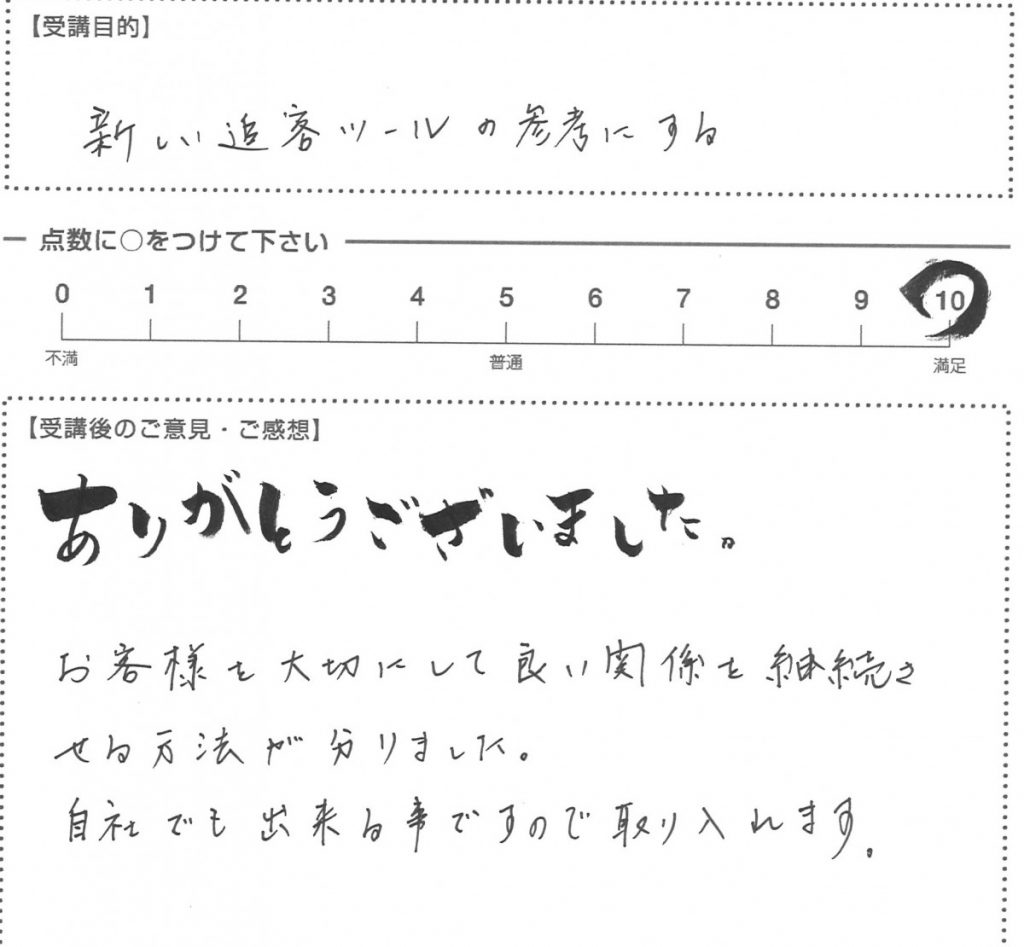 【受講目的】
新しい追客ツールの参考にする
点数に○をつけて下さい
0 1 2 3 4 5 6 7 8 9 10
不満 普通 満足
【受講後のご意見・ご感想】
ありがとうございました。
お客様を大切にして良い関係を継続さ
せる方法が分りました。
自社でも出来る事ですので取り入れます。